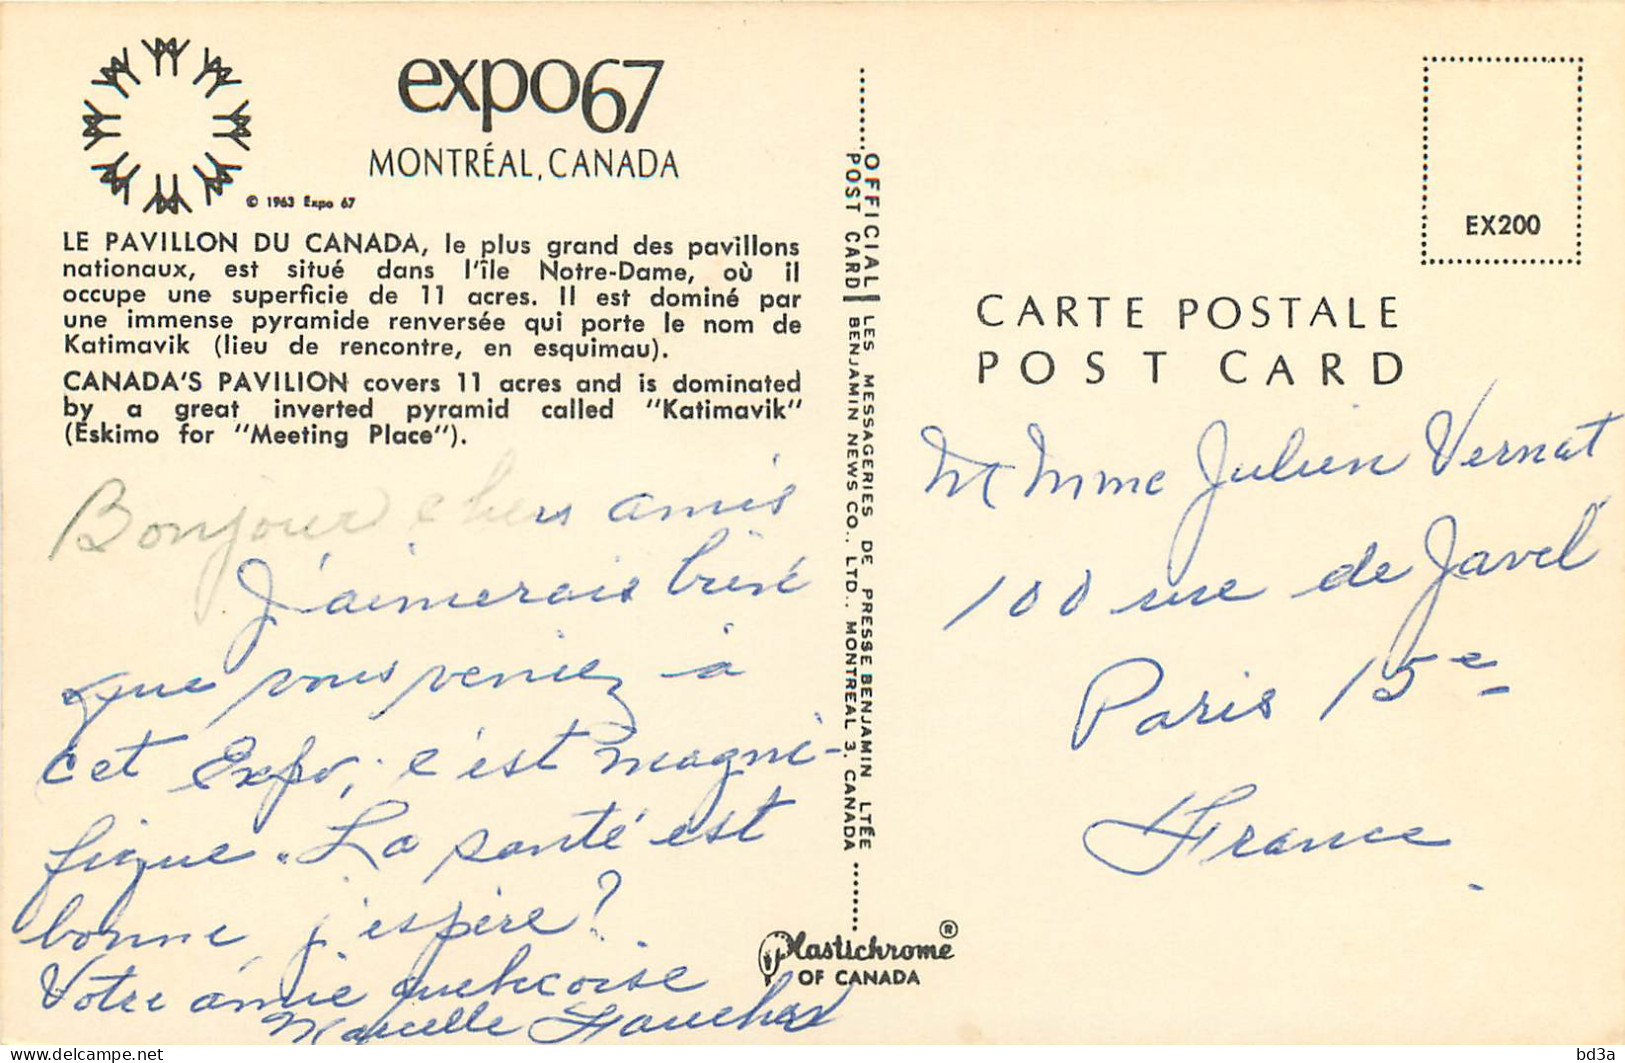 expo67
MONTRÉAL, CANADA
© 1963 Expo 67
LE PAVILLON DU CANADA, le plus grand des pavillons
nationaux, est situé dans l'île Notre-Dame, où il
occupe une superficie de 11 acres. Il est dominé par
une immense pyramide renversée qui porte le nom de
Katimavik (lieu de rencontre, en esquimau).
CANADA'S PAVILION covers 11 acres and is dominated
by a great inverted pyramid called "Katimavik"
(Eskimo for "Meeting Place").
Bonjour chers amis
J'aimerais
que vous veniez à
cet Expo, c'est magni-
fique. La santé est
bonne j'espère?
Votre amie québecoise
Marcelle
OFFICIAL POST CARD
LES MESSAGERIES DE PRESSE BENJAMIN LTÉE
BENJAMIN NEWS CO., LTD., MONTREAL 3, CANADA
Plastichrome ®
OF CANADA
EX200
CARTE POSTALE
POST CARD
M Mme Julien Vernat
100 rue de Javel
Paris 15e
France
delcampe.net
bd3a